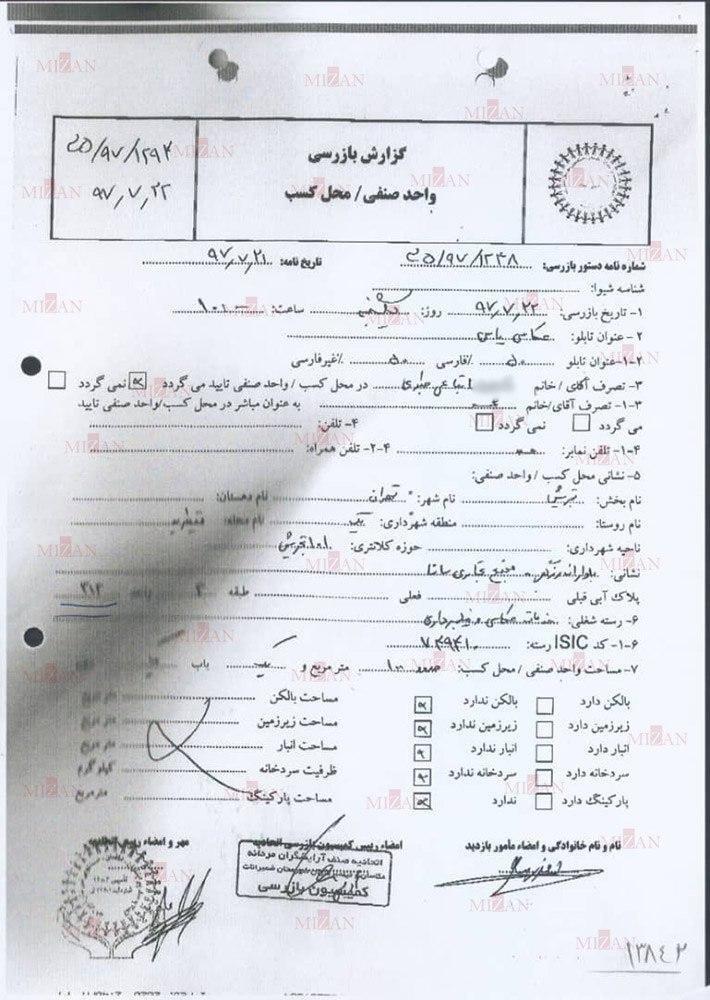 گزارش بازرسی
واحد صنفی / محل کسب
۲۵/۹۷/۱۲۹۴
۹۷,۷,۲۲
شماره نامه دستور بازرسی: ۲۵/۹۷/۱۲۴۸ تاریخ نامه: ۹۷,۷,۲۱
شناسه شیوا:
۱- تاریخ بازرسی: ۹۷,۷,۲۲ روز: ساعت: ۱۰
۲- عنوان تابلو: عکاسی یاس
۲-۱- عنوان تابلو ۵۰ ٪فارسی ۵۰ ٪غیرفارسی
۳- تصرف آقای / خانم در محل کسب / واحد صنفی تایید می گردد نمی گردد
۳-۱- تصرف آقای/خانم به عنوان مباشر در محل کسب/واحد صنفی تایید
می گردد نمی گردد ۴- تلفن:
۴-۱- تلفن نمابر: ۴-۲- تلفن همراه:
۵- نشانی محل کسب / واحد صنفی:
نام بخش: تجریش نام شهر: تهران نام دهستان:
نام روستا: منطقه شهرداری: یک نام محله: قیطریه
ناحیه شهرداری: حوزه کلانتری: ۱۰۱ تجریش
نشانی: مجتمع تجاری سانا
پلاک آبی قبلی فعلی طبقه ۳ واحد ۳۱۳
۶- رسته شغلی: خدمات عکاسی و فیلمبرداری
۶-۱- کد ISIC رسته: ۷۴۹۴۱۰
۷- مساحت واحد صنفی / محل کسب: حدود ۱۰۰ متر مربع و یک باب
بالکن دارد بالکن ندارد مساحت بالکن متر مربع
زیرزمین دارد زیرزمین ندارد مساحت زیرزمین متر مربع
انبار دارد انبار ندارد مساحت انبار متر مربع
سردخانه دارد سردخانه ندارد ظرفیت سردخانه کیلو گرم
پارکینگ دارد ندارد مساحت پارکینگ مترمربع
نام و نام خانوادگی و امضاء مأمور بازدید امضاء رییس کمیسیون بازرسی اتحادیه مهر و امضاء رییس اتحادیه
اتحادیه صنف آرایشگران مردانه
شهرستان شمیرانات
کمیسیون بازرسی
۱۳۸۴۲
MIZAN